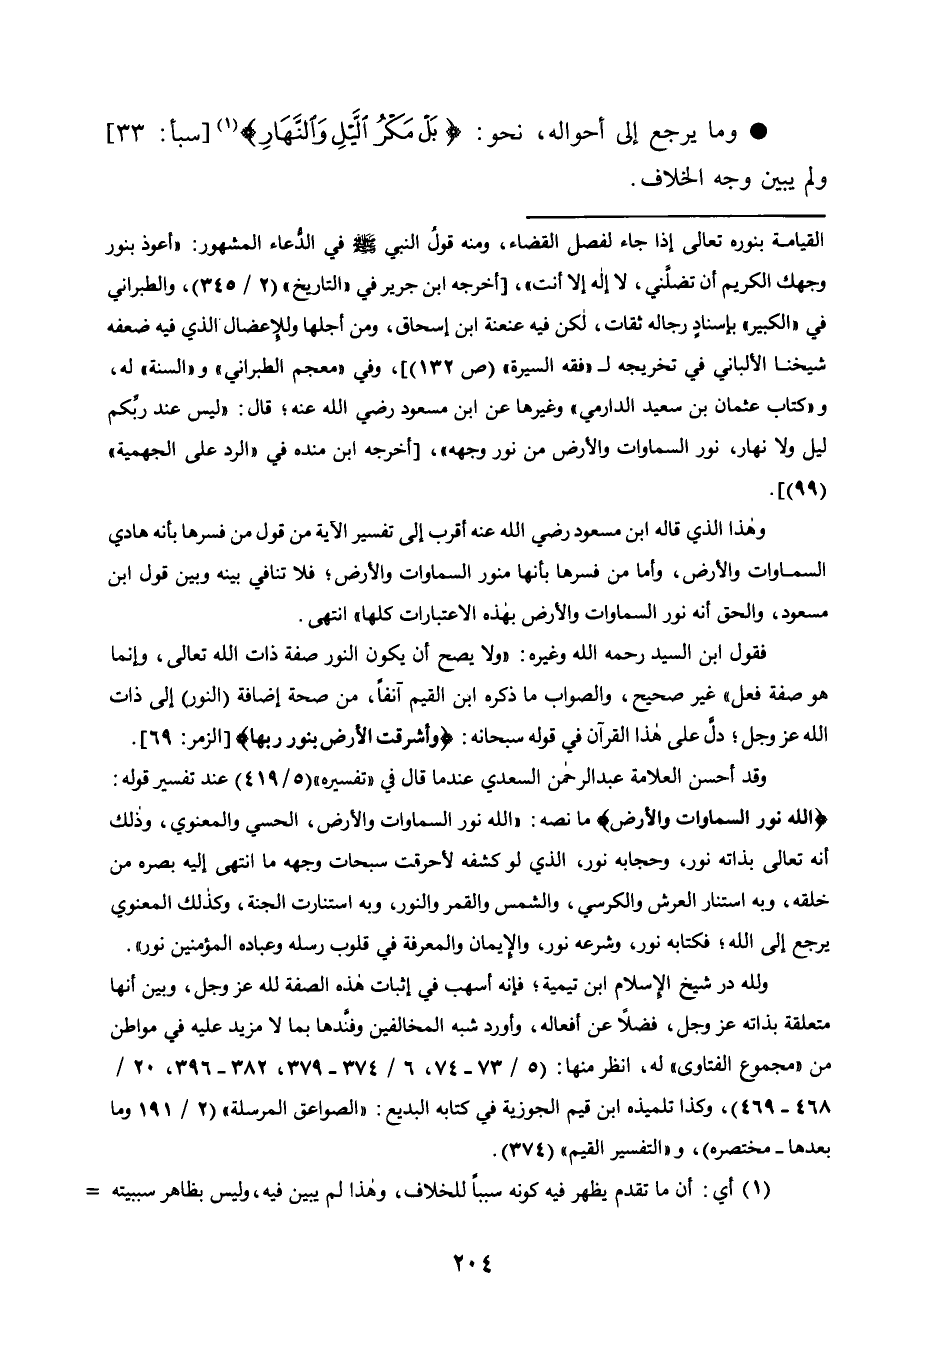 ● وما يرجع إلى أحواله، نحو: ﴿بَلْ مَكْرُ ٱلَّيْلِ وَٱلنَّهَارِ﴾(١) [سبأ: ٣٣]
ولم يبين وجه الخلاف.
القيامة بنوره تعالى إذا جاء لفصل القضاء، ومنه قولُ النبي ﷺ في الدُّعاء المشهور: «أعوذ بنور
وجهك الكريم أن تضلَّني، لا إلٰه إلا أنت»، [أخرجه ابن جرير في «التاريخ» (٢ / ٣٤٥)، والطبراني
في «الكبير» بإسنادٍ رجاله ثقات، لٰكن فيه عنعنة ابن إسحاق، ومن أجلها وللإعضال الذي فيه ضعفه
شيخنا الألباني في تخريجه لـ «فقه السيرة» (ص ١٣٢)]، وفي «معجم الطبراني» و«السنة» له،
و«كتاب عثمان بن سعيد الدارمي» وغيرها عن ابن مسعود رضي الله عنه؛ قال: «ليس عند ربِّكم
ليل ولا نهار، نور السماوات والأرض من نور وجهه»، [أخرجه ابن منده في «الرد على الجهمية»
(٩٩)].
وهٰذا الذي قاله ابن مسعود رضي الله عنه أقرب إلى تفسير الآية من قول من فسرها بأنه هادي
السماوات والأرض، وأما من فسرها بأنها منور السماوات والأرض؛ فلا تنافي بينه وبين قول ابن
مسعود، والحق أنه نور السماوات والأرض بهٰذه الاعتبارات كلها» انتهى.
فقول ابن السيد رحمه الله وغيره: «ولا يصح أن يكون النور صفة ذات الله تعالى، وإنما
هو صفة فعل» غير صحيح، والصواب ما ذكره ابن القيم آنفاً، من صحة إضافة (النور) إلى ذات
الله عز وجل؛ دلَّ على هٰذا القرآن في قوله سبحانه: ﴿وأشرقت الأرض بنور ربها﴾ [الزمر: ٦٩].
وقد أحسن العلامة عبدالرحمٰن السعدي عندما قال في «تفسيره»(٥/ ٤١٩) عند تفسير قوله:
﴿الله نور السماوات والأرض﴾ ما نصه: «الله نور السماوات والأرض، الحسي والمعنوي، وذٰلك
أنه تعالى بذاته نور، وحجابه نور، الذي لو كشفه لأحرقت سبحات وجهه ما انتهى إليه بصره من
خلقه، وبه استنار العرش والكرسي، والشمس والقمر والنور، وبه استنارت الجنة، وكذٰلك المعنوي
يرجع إلى الله؛ فكتابه نور، وشرعه نور، والإيمان والمعرفة في قلوب رسله وعباده المؤمنين نور».
ولله در شيخ الإسلام ابن تيمية؛ فإنه أسهب في إثبات هٰذه الصفة لله عز وجل، وبين أنها
متعلقة بذاته عز وجل، فضلًا عن أفعاله، وأورد شبه المخالفين وفنَّدها بما لا مزيد عليه في مواطن
من «مجموع الفتاوى» له، انظر منها: (٥ / ٧٣ ـ ٧٤، ٦ / ٣٧٤ ـ ٣٧٩، ٣٨٢ ـ ٣٩٦، ٢٠ /
٤٦٨ ـ ٤٦٩)، وكذا تلميذه ابن قيم الجوزية في كتابه البديع: «الصواعق المرسلة» (٢ / ١٩١ وما
بعدها ـ مختصره)، و«التفسير القيم» (٣٧٤).
(١) أي: أن ما تقدم يظهر فيه كونه سبباً للخلاف، وهٰذا لم يبين فيه، وليس بظاهر سببيته =
٢٠٤